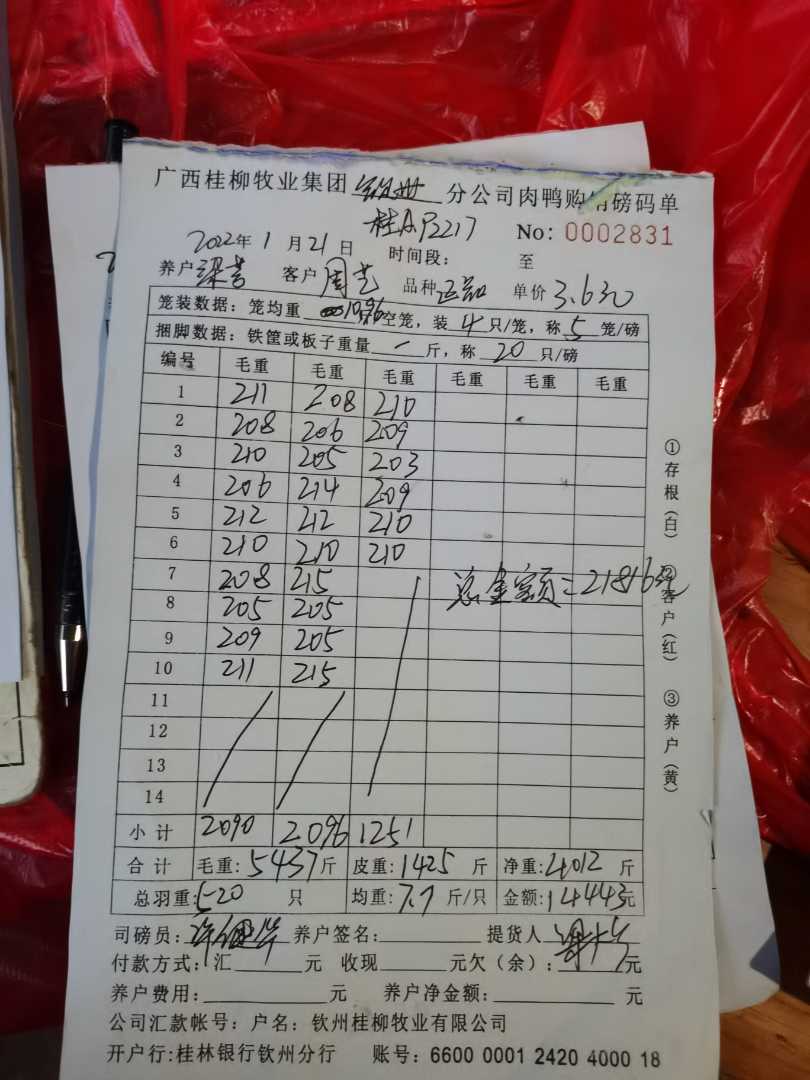 广西桂柳牧业集团 钦州 分公司肉鸭购销磅码单
桂A P3217 No: 0002831
2022年 1 月 21 日 时间段: 至
养户 客户 周艺 品种 正品 单价 3.6元
笼装数据: 笼均重 10.96 空笼, 装 4 只/笼, 称 5 笼/磅
捆脚数据: 铁筐或板子重量 一 斤, 称 20 只/磅
编号 毛重 毛重 毛重 毛重 毛重 毛重
1 211 208 210
2 208 206 209
3 210 205 203
4 206 214 209
5 212 212 210
6 210 210 210
7 208 215 总金额=21816元
8 205 205
9 209 205
10 211 215
11
12
13
14
小计 2090 2096 1251
合计 毛重: 5437 斤 皮重: 1425 斤 净重: 4012 斤
总羽重: 520 只 均重: 7.7 斤/只 金额: 14443元
司磅员: 养户签名: 提货人
付款方式: 汇 元 收现 元欠(余): 元
养户费用: 元 养户净金额: 元
公司汇款帐号: 户名: 钦州桂柳牧业有限公司
开户行:桂林银行钦州分行 账号: 6600 0001 2420 4000 18
①存根(白) ②客户(红) ③养户(黄)